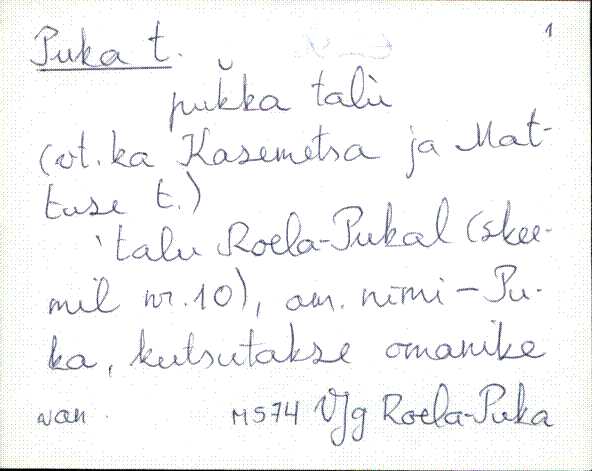 1
Puka t.
puk̆ka talù
(vt. ka Kasemetsa ja Mat-
tuse t.)
'talu Roela-Pukal (skee-
mil nr. 10), am. nimi - Pu-
ka, kutsutakse omanike
van. MS74 VJg Roela-Puka